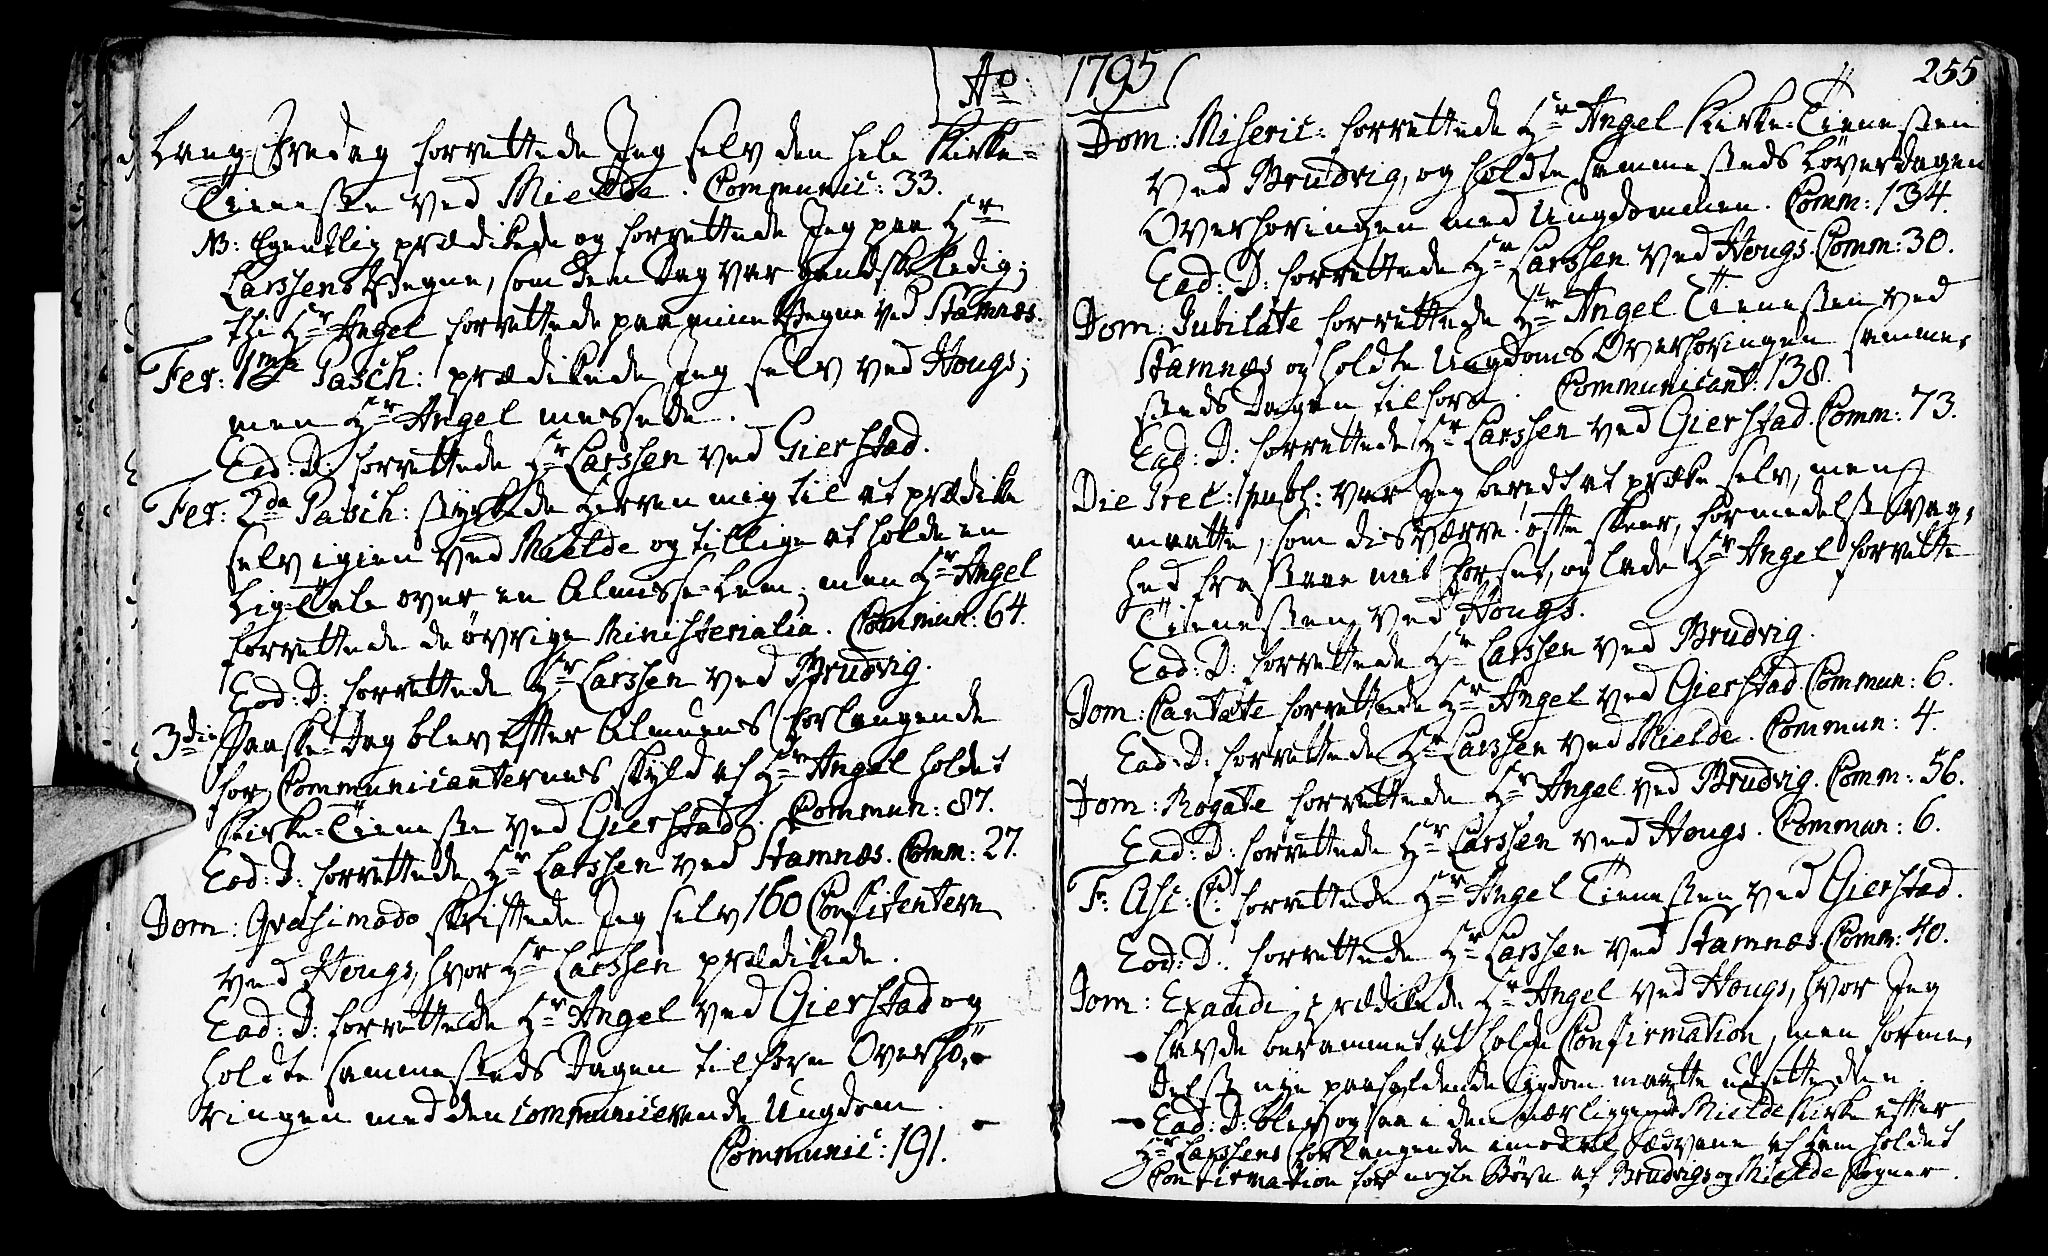 Ao
Lang-Fredag forrettede Jeg selv den hele Kirke-
Tieneste ved Mielde. Communic: 33.
NB: Egentlig prædikede og forrettede Jeg paa Hr
Larssens Vegne, som den Dag var gandske ledig;
thi Hr Angel forrettede paa mine Vegne ved Stamnæs.
Fer: 1ma Pasch: prædikede Jeg selv ved Hougs;
men Hr Angel messede.
Ead: D: forrettede Hr Larssen ved Gierstad.
Fer: 2da Pasch: styrkede Herren mig til at prædike
selv igien ved Mielde og tillige at holde en
Lig-Tale over en Almisse-Lem; men Hr Angel
forrettede de øvrige Ministerialia. Commun: 64.
Eod: D: forrettede Hr Larssen ved Brudvig.
3die Paaske-Dag blev efter Almuens Forlangende
for Communicanternes skyld af Hr Angel holdet
Kirke-Tieneste ved Gierstad. Commun: 87.
Eod: D: forrettede Hr Larssen ved Stamnæs. Comm: 27.
Dom: Qvasimodo skriftede Jeg selv 160 Confitentere
ved Hougs, hvor Hr Larssen prædikede.
Ead: D: forrettede Hr Angel ved Gierstad og
holdte sammesteds Dagen tilforn Overhø-
ringen med den communicerende Ungdom.
Communic: 191.
1795
255
Dom: Miseric: forrettede Hr Angel Kirke-Tienesten
ved Brudvig, og holdte sammesteds Løverdagen
Overhøringen med Ungdommen. Comm: 134.
Ead: D: forrettede Hr Larssen ved Hougs. Comm: 30.
Dom: Jubilate forrettede Hr Angel Tienesten ved
Stamnæs og holdte Ungdoms Overhøringen samme-
steds Dagen tilforn. Communicant: 138.
Ead: D: forrettede Hr Larssen ved Gierstad. Comm: 73.
Die Prec: publ: var Jeg beredt at præke selv, men
maatte, som desværre! ofte skeer, formedelst svag-
hed frastaae mit Forsæt, og lade Hr Angel forrette
Tienesten ved Hougs.
Eod: D: forrettede Hr Larssen ved Brudvig.
Dom: Cantate forrettede Hr Angel ved Gierstad. Commun: 6.
Ead: D: forrettede Hr Larssen ved Mielde. Commun: 4.
Dom: Rogate forrettede Hr Angel ved Brudvig. Comm: 56.
Ead: D: forrettede Hr Larssen ved Hougs. Commun: 6.
F: Asc: C: forrettede Hr Angel Tienesten ved Gierstad.
Eod: D: forrettede Hr Larssen ved Stamnæs. Comm: 40.
Dom: Exaudi prædikede Hr Angel ved Hougs, hvor Jeg
havde berammet at holde Confirmation, men forme-
delst nye paafaldende Sygdom maatte udsette den.
Ead: D: blev ogsaa i den nærliggende Mielde Kirke efter
Hr Larssens Forlangende imod al Sædvane af ham holdet
Confirmation for nogle Børn af Brudvigs og Mielde Sogner.